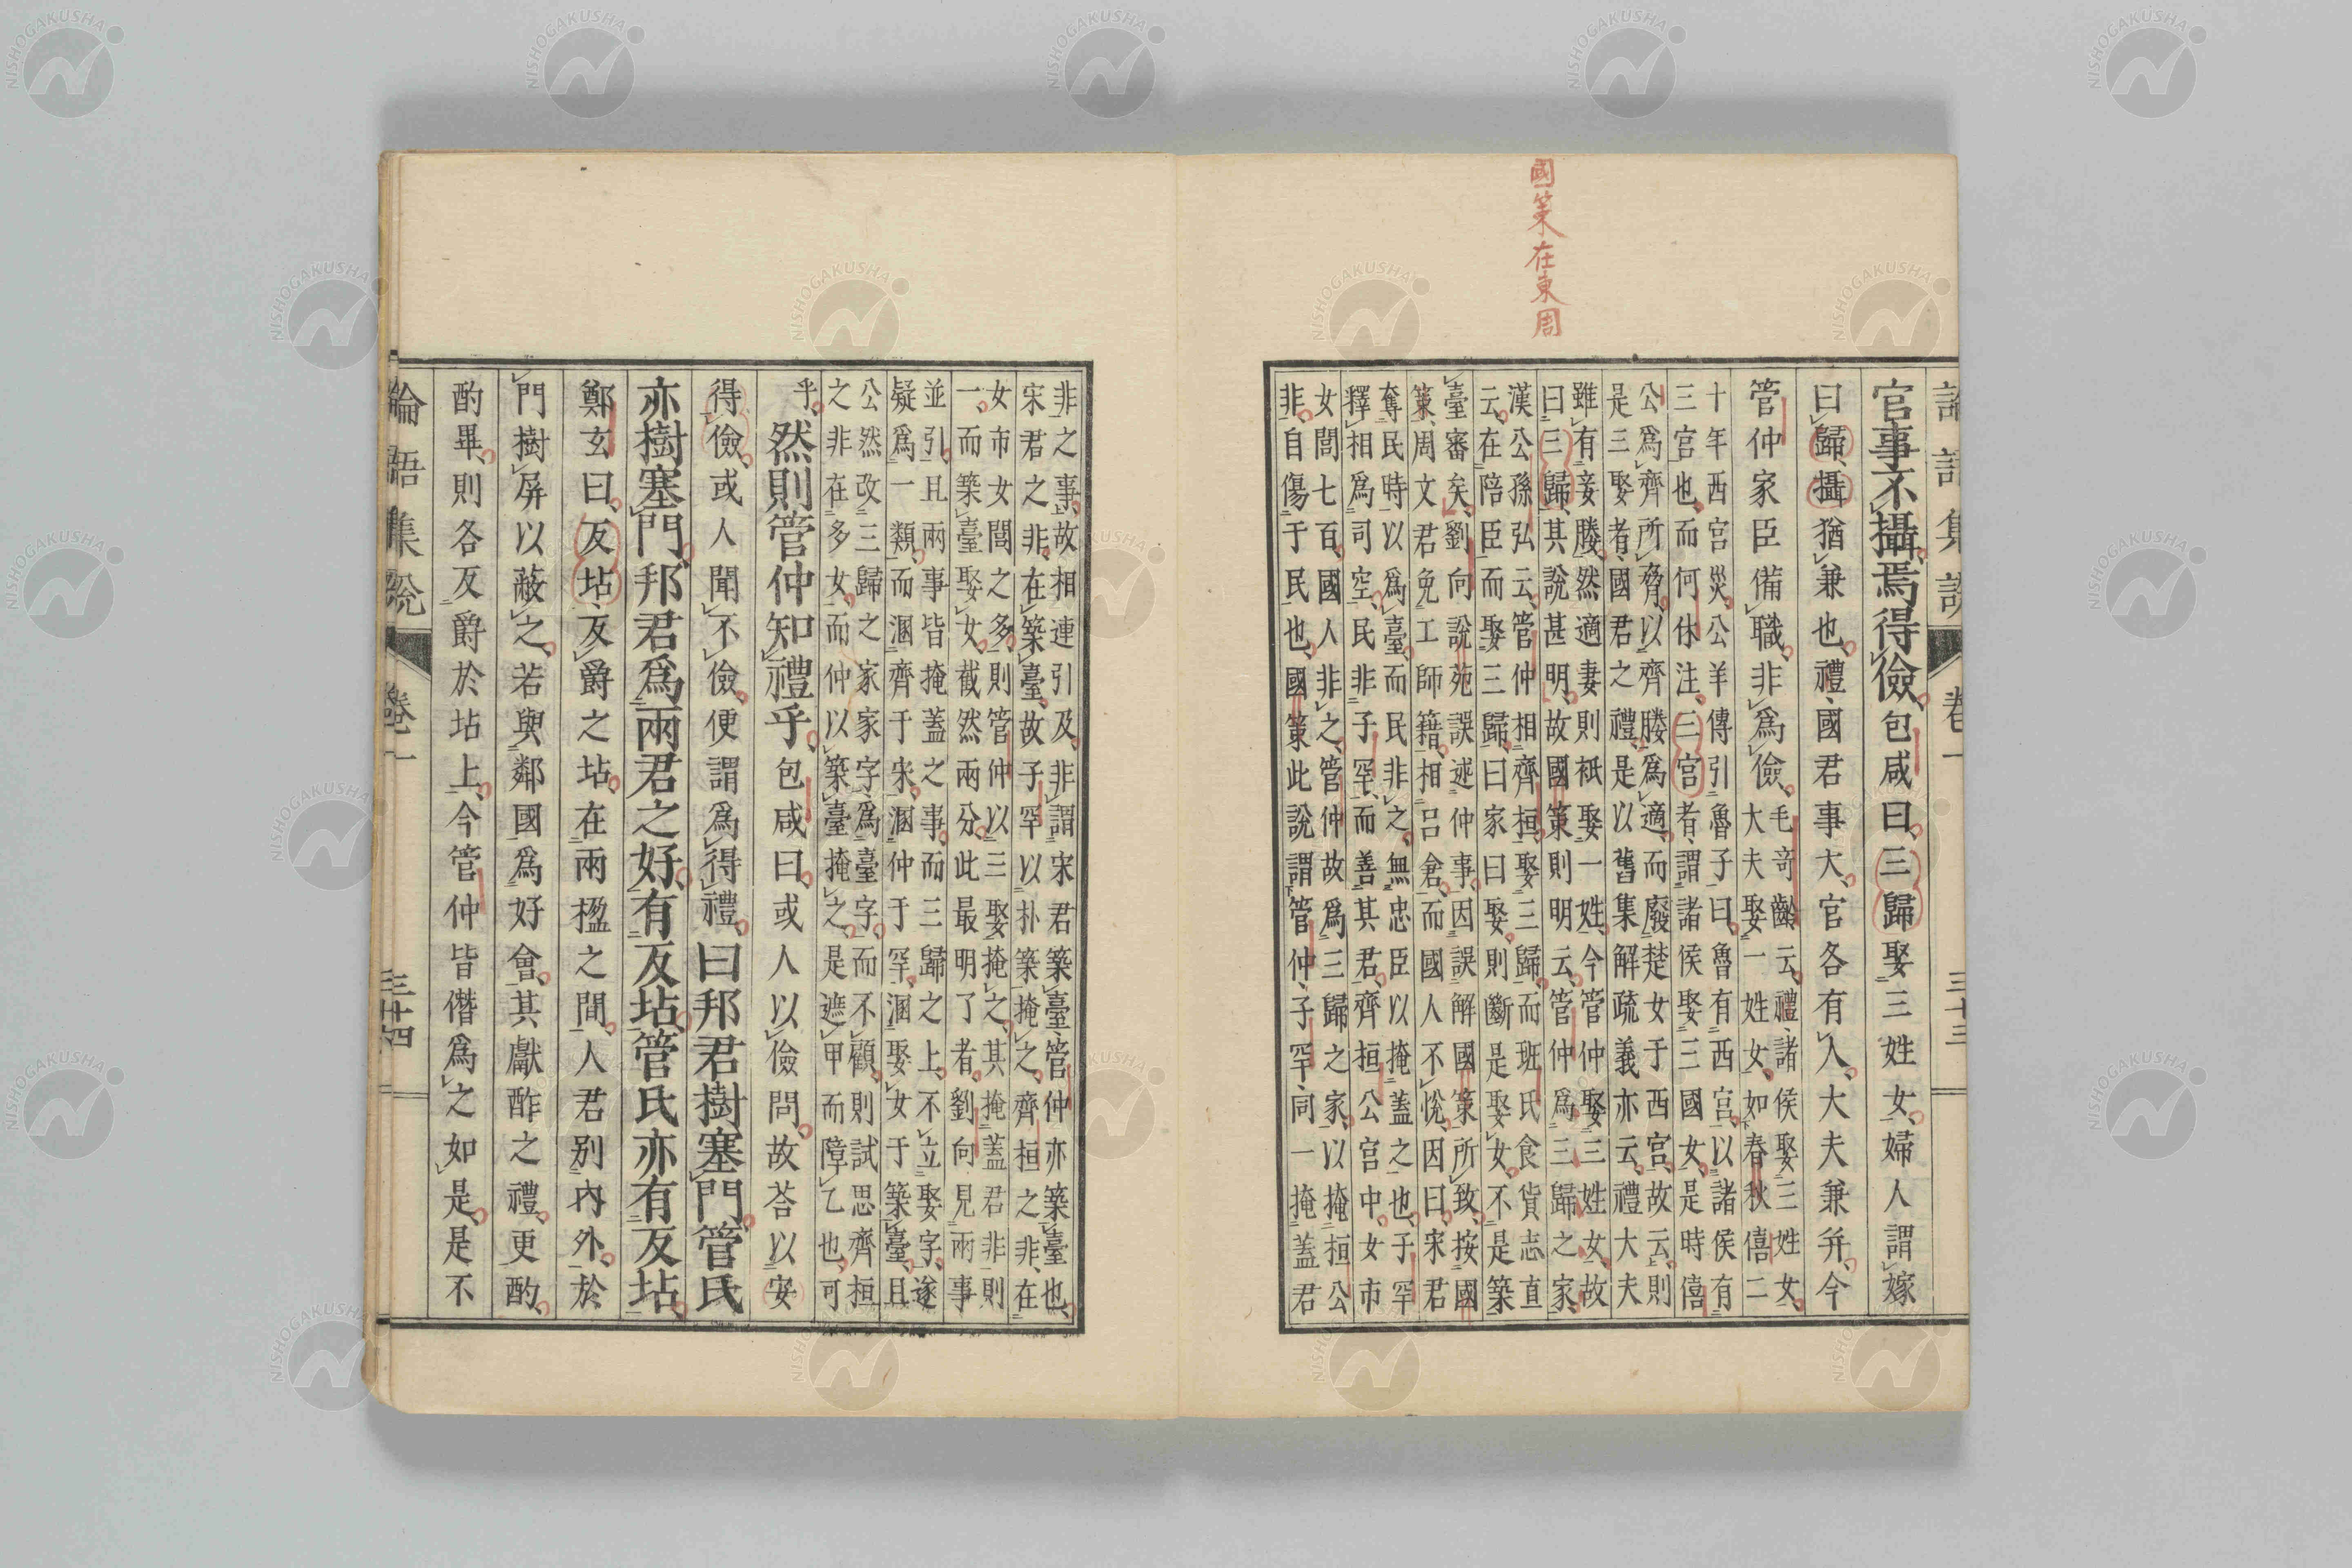 國策在東周
論語集說 卷一 三十三
官事不攝焉得儉包咸曰三歸娶三姓女婦人謂嫁
曰歸攝猶兼也禮國君事大官各有人大夫兼幷今
管仲家臣備職非爲儉毛奇齡云禮諸侯娶三姓女
大夫娶一姓女如春秋僖二
十年西宮災公羊傳引魯子曰魯有西宮以諸侯有
三宮也而何休注三宮者謂諸侯娶三國女是時僖
公爲齊所脅以齊媵爲適而廢楚女于西宮故云則
是三娶者國君之禮是以舊集解疏義亦云禮大夫
雖有妾媵然適妻則祇娶一姓今管仲娶三姓女故
曰三歸其說甚明故國策則明云管仲爲三歸之家
漢公孫弘云管仲相齊桓娶三歸而班氏食貨志直
云在陪臣而娶三歸曰家曰娶則斷是娶女不是築
臺審矣劉向說苑誤述仲事因誤解國策所致按國
策周文君免工師籍相呂倉而國人不悅因曰宋君
奪民時以爲臺而民非之無忠臣以掩蓋之也子罕
釋相爲司空民非子罕而善其君齊桓公宮中女市
女閭七百國人非之管仲故爲三歸之家以掩桓公
非自傷于民也國策此說謂管仲子罕同一掩蓋君
非之事故相連引及非謂宋君築臺管仲亦築臺也
宋君之非在築臺故子罕以扑築掩之齊桓之非在
女市女閭之多則管仲以三娶掩之其掩蓋君非則
一而築臺娶女截然兩分此最明了者劉向見兩事
並引且兩事皆掩蓋之事而三歸之上不立娶字遂
疑爲一類而溷齊于宋溷仲于罕溷娶女于築臺且
公然改三歸之家家字爲臺字而不顧則試思齊桓
之非在多女而仲以築臺掩之是遮甲而障乙也可
乎 然則管仲知禮乎包咸曰或人以儉問故荅以安
得儉或人聞不儉便謂爲得禮曰邦君樹塞門管氏
亦樹塞門邦君爲兩君之好有反坫管氏亦有反坫
鄭玄曰反坫反爵之坫在兩楹之間人君别內外於
門樹屏以蔽之若與鄰國爲好會其獻酢之禮更酌
酌畢則各反爵於坫上今管仲皆僭爲之如是是不
論語集說 卷一 三十四
NISHOGAKUSHA